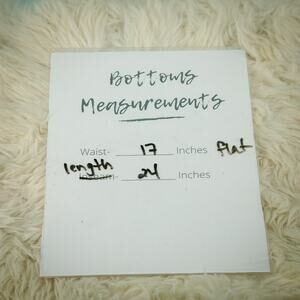 Bottoms
Measurements
Waist- 17 Inches flat
length
Inseam- 24 Inches